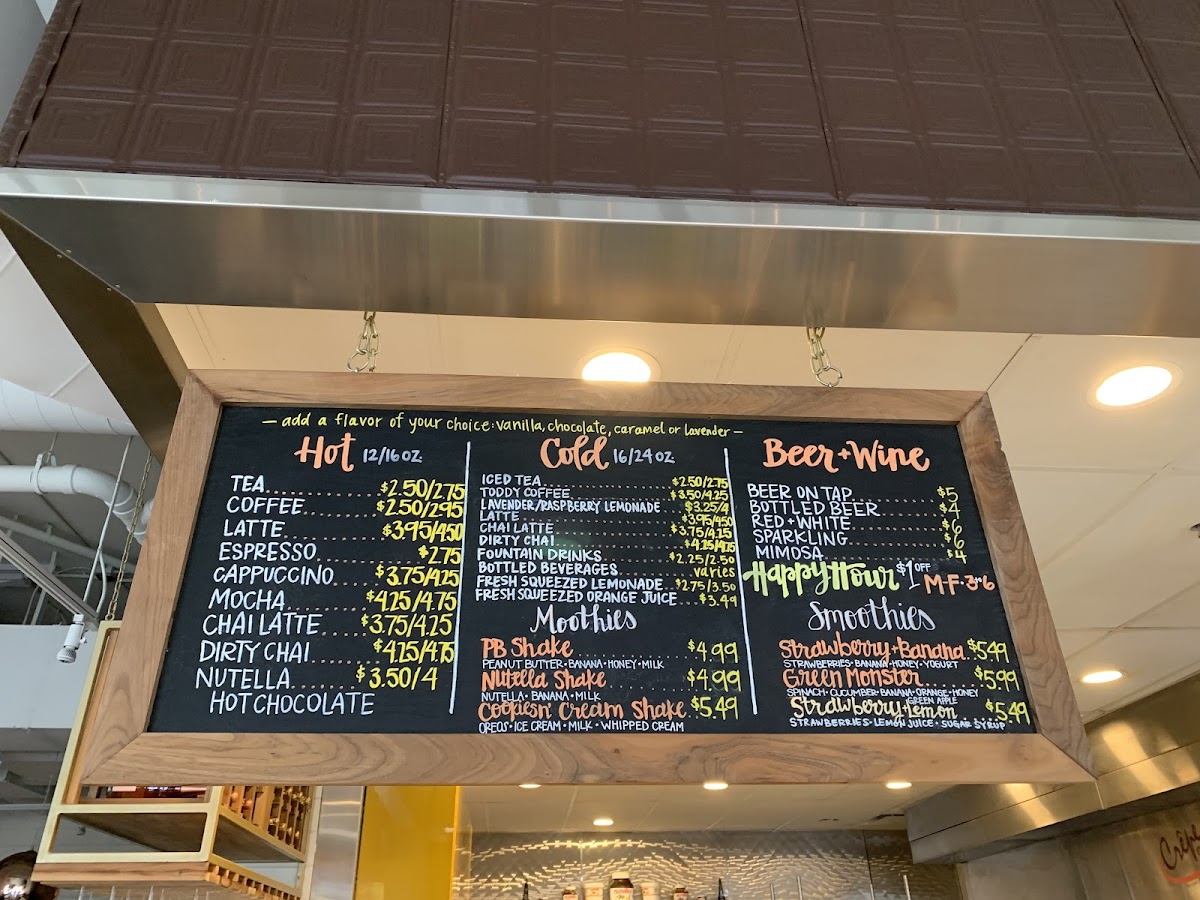 — add a flavor of your choice: vanilla, chocolate, caramel or lavender —
Hot 12/16 OZ.
TEA $2.50/2.75
COFFEE $2.50/2.95
LATTE $3.95/4.50
ESPRESSO $2.75
CAPPUCCINO $3.75/4.25
MOCHA $4.25/4.75
CHAI LATTE $3.75/4.25
DIRTY CHAI $4.25/4.75
NUTELLA $3.50/4
HOT CHOCOLATE
Cold 16/24 OZ.
ICED TEA $2.50/2.75
TODDY COFFEE $3.50/4.25
LAVENDER/RASPBERRY LEMONADE $3.25/4
LATTE $3.95/4.50
CHAI LATTE $3.75/4.25
DIRTY CHAI $4.25/4.75
FOUNTAIN DRINKS $2.25/2.50
BOTTLED BEVERAGES varies
FRESH SQUEEZED LEMONADE $2.75/3.50
FRESH SQUEEZED ORANGE JUICE $3.49
Moothies
PB Shake $4.99
PEANUT BUTTER • BANANA • HONEY • MILK
Nutella Shake $4.99
NUTELLA • BANANA • MILK
Cookiesn' Cream Shake $5.49
OREOS • ICE CREAM • MILK • WHIPPED CREAM
Beer + Wine
BEER ON TAP $5
BOTTLED BEER $4
RED + WHITE $6
SPARKLING $6
MIMOSA $4
Happy Hour $1 OFF M-F 3-6
Smoothies
Strawberry + Banana $5.49
STRAWBERRIES • BANANA • HONEY • YOGURT
Green Monster $5.99
SPINACH • CUCUMBER • BANANA • ORANGE • HONEY
GREEN APPLE
Strawberry + Lemon $5.49
STRAWBERRIES • LEMON JUICE • SUGAR SYRUP